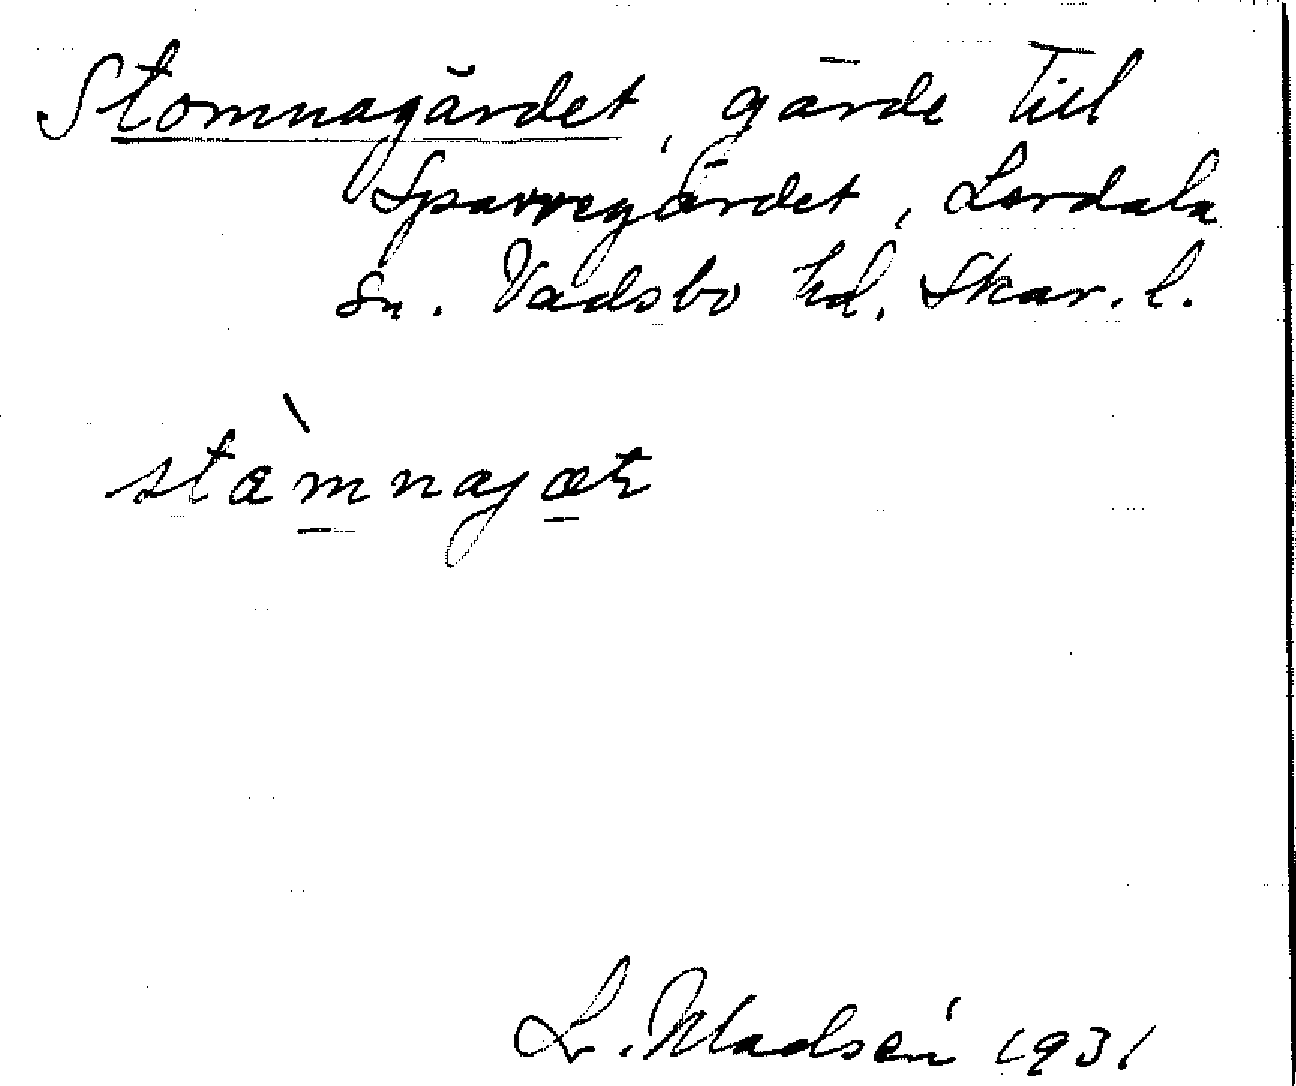 Stomnagärdet, gärde till
Sparregärdet, Lerdala
sn. Vadsbo hd. Skar. l.
stàmnajæt
L. Madsén 1931